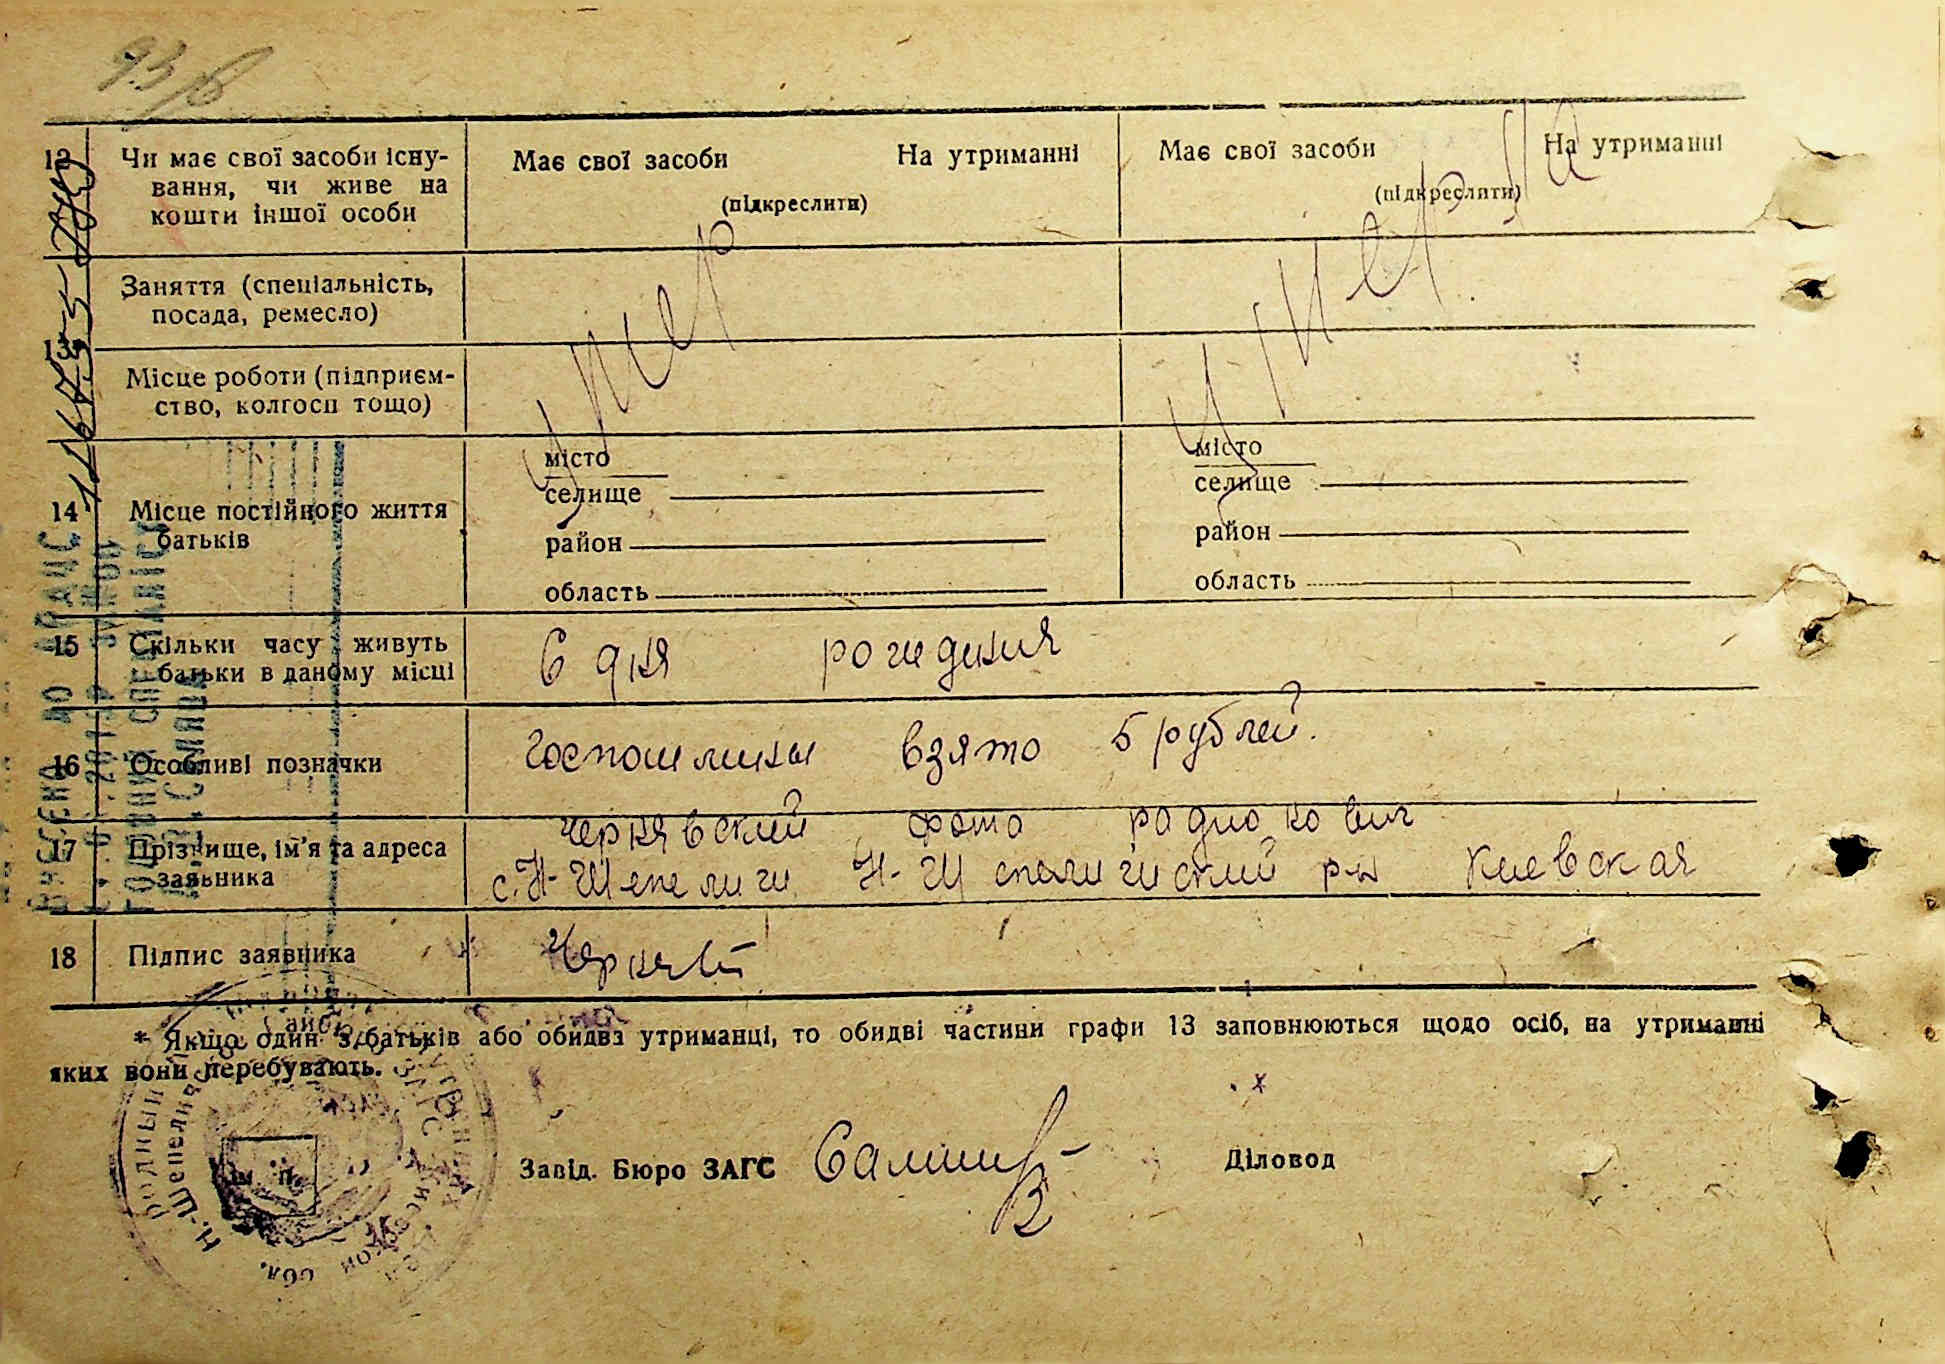 93/в
12
Чи має свої засоби існу-
вання, чи живе на
кошти іншої особи
Має свої засоби На утриманні
(підкреслити)
Має свої засоби На утриманні
(підкреслити)
Заняття (спеціальність,
посада, ремесло)
13
Місце роботи (підприєм-
ство, колгосп тощо)
умер
умерла
14
Місце постійного життя
батьків
місто
селище
район
область
місто
селище
район
область
15
Скільки часу живуть
батьки в даному місці
С дня рождения
16
Особливі позначки
Госпошлины взято 5 рублей.
17
Прізвище, ім'я та адреса
заявника
Чернявский Фома
с. Н-Шепеличи Н-Шепеличский р-н Киевская
18
Підпис заявника
Черняв
* Якщо один з батьків або обидва утриманці, то обидві частини графи 13 заповнюються щодо осіб, на утриманні
яких вони перебувають.
Завід. Бюро ЗАГС
Діловод
ВНЕСЕНО ДО
ГОЛОВНИЙ СПЕЦІАЛІСТ
Н.-Шепелич
ЗАГС
Киевской обл.